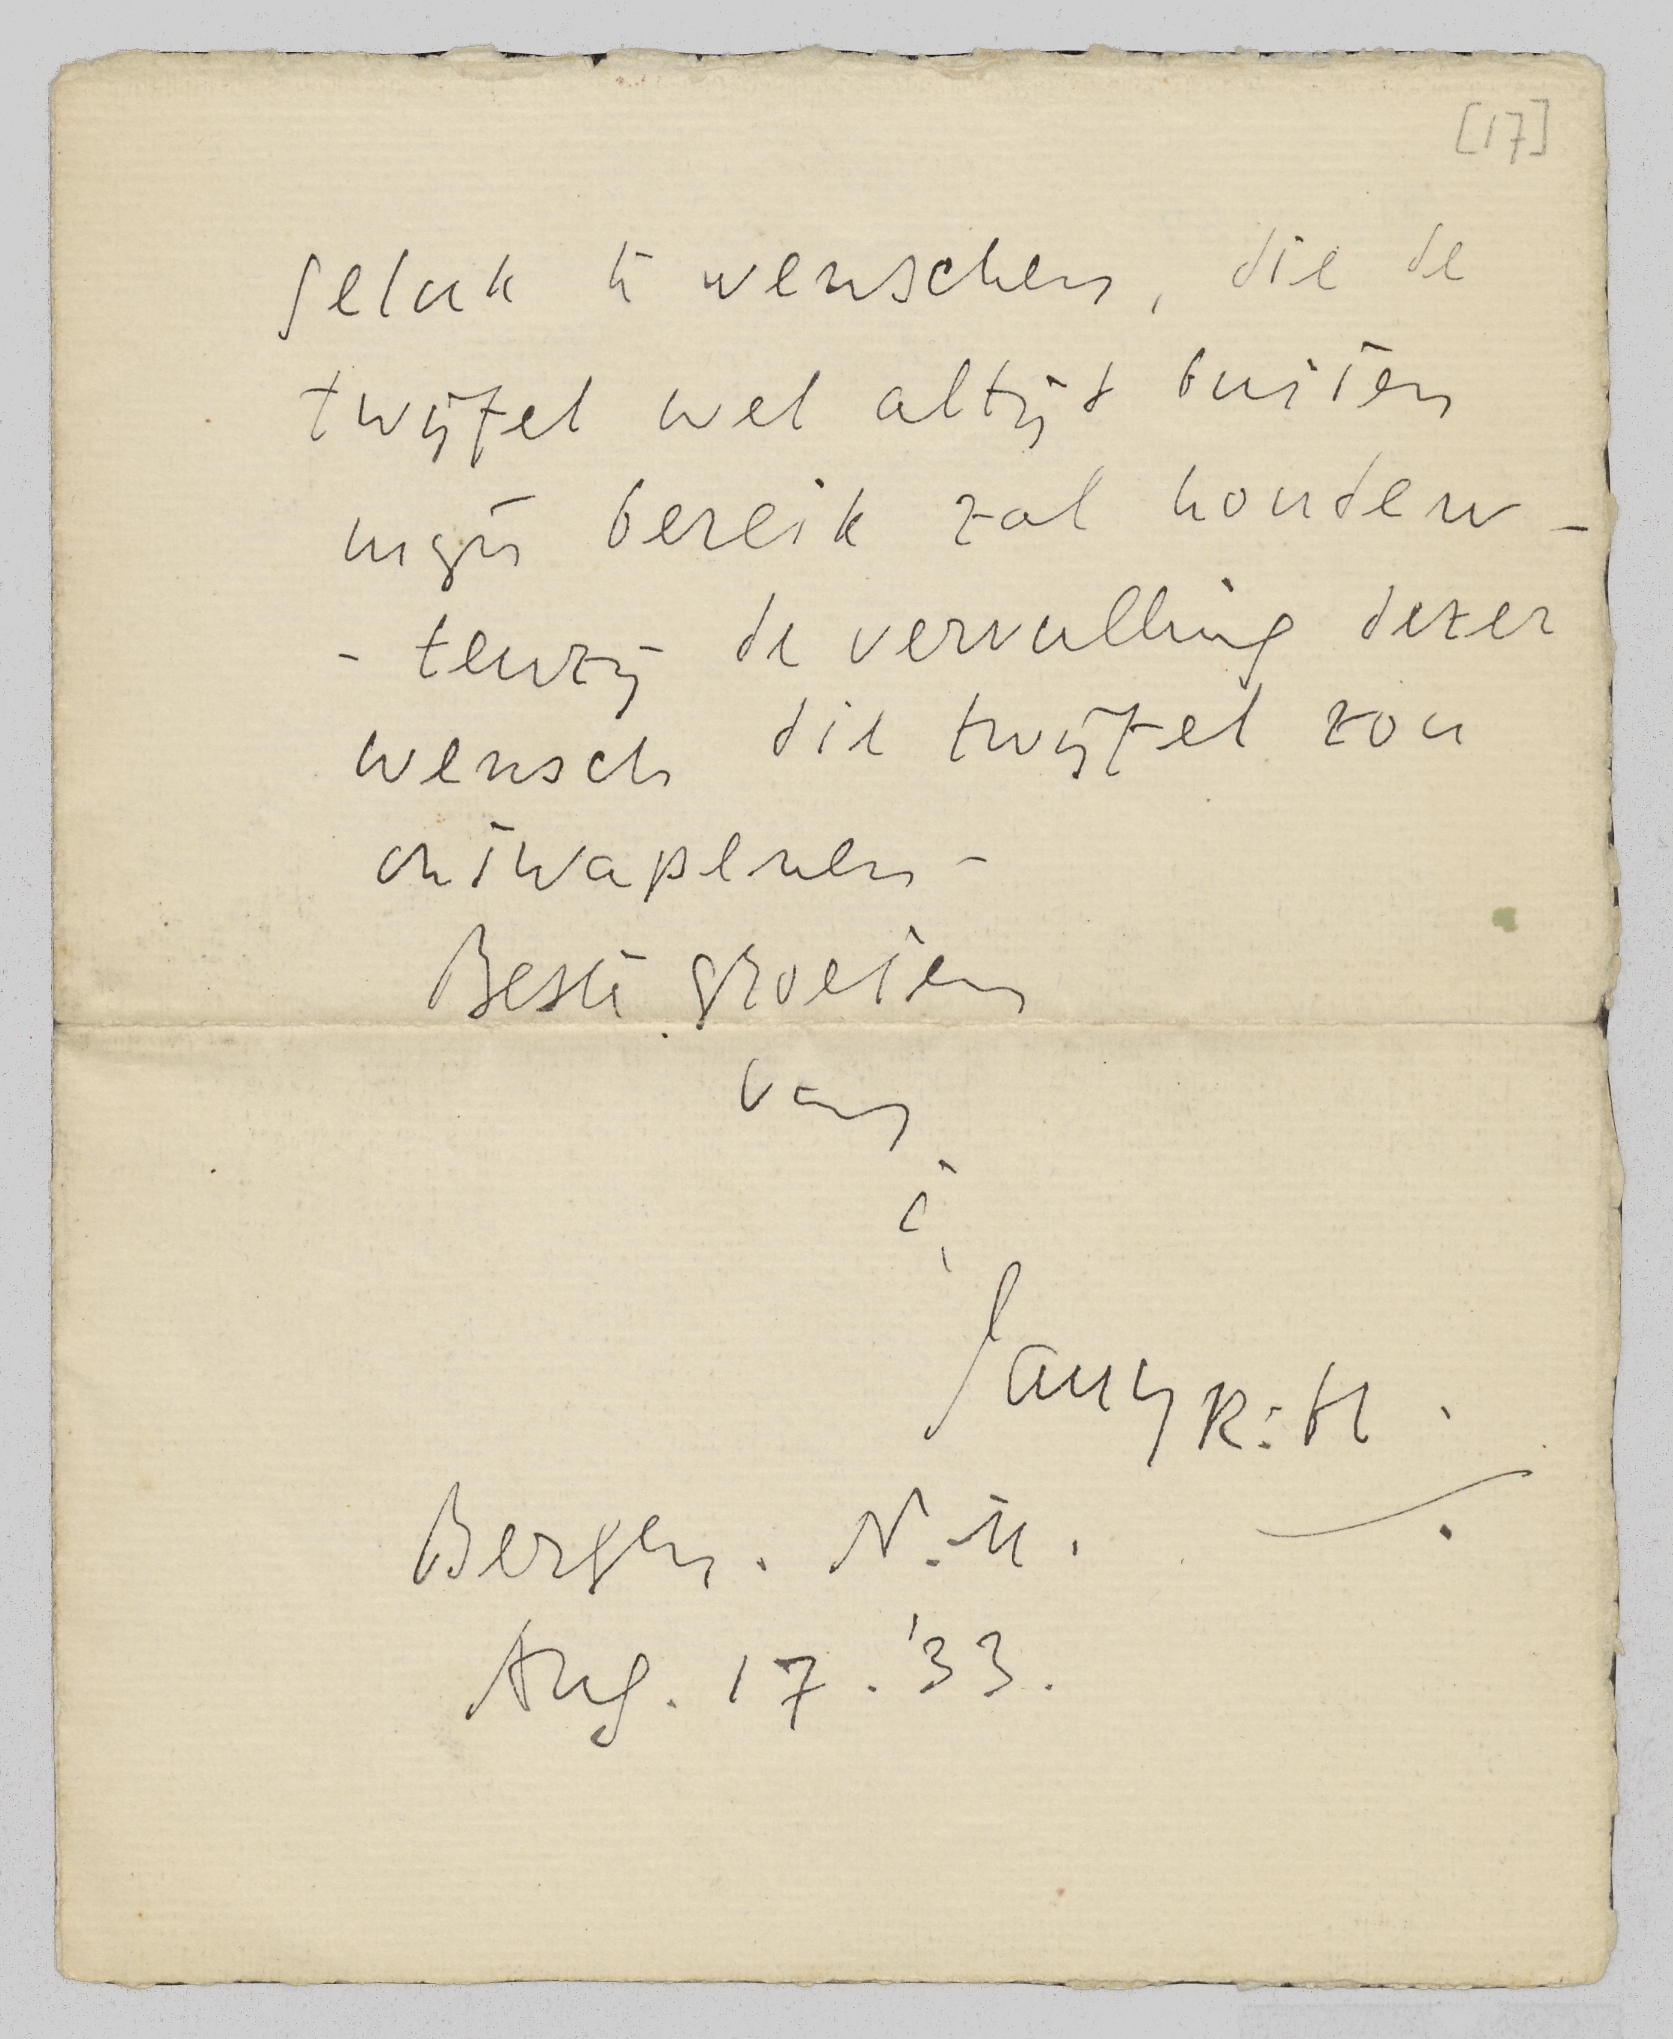 [17]
geluk te wenschen, die de
twijfel wel altijd buiten
mijn bereik zal houden -
- tenzij de vervulling dezer
wensch die twijfel zou
ontwapenen -
Beste groeten
van
Jany R: H.
Bergen. N.-H.
Aug. 17. '33.